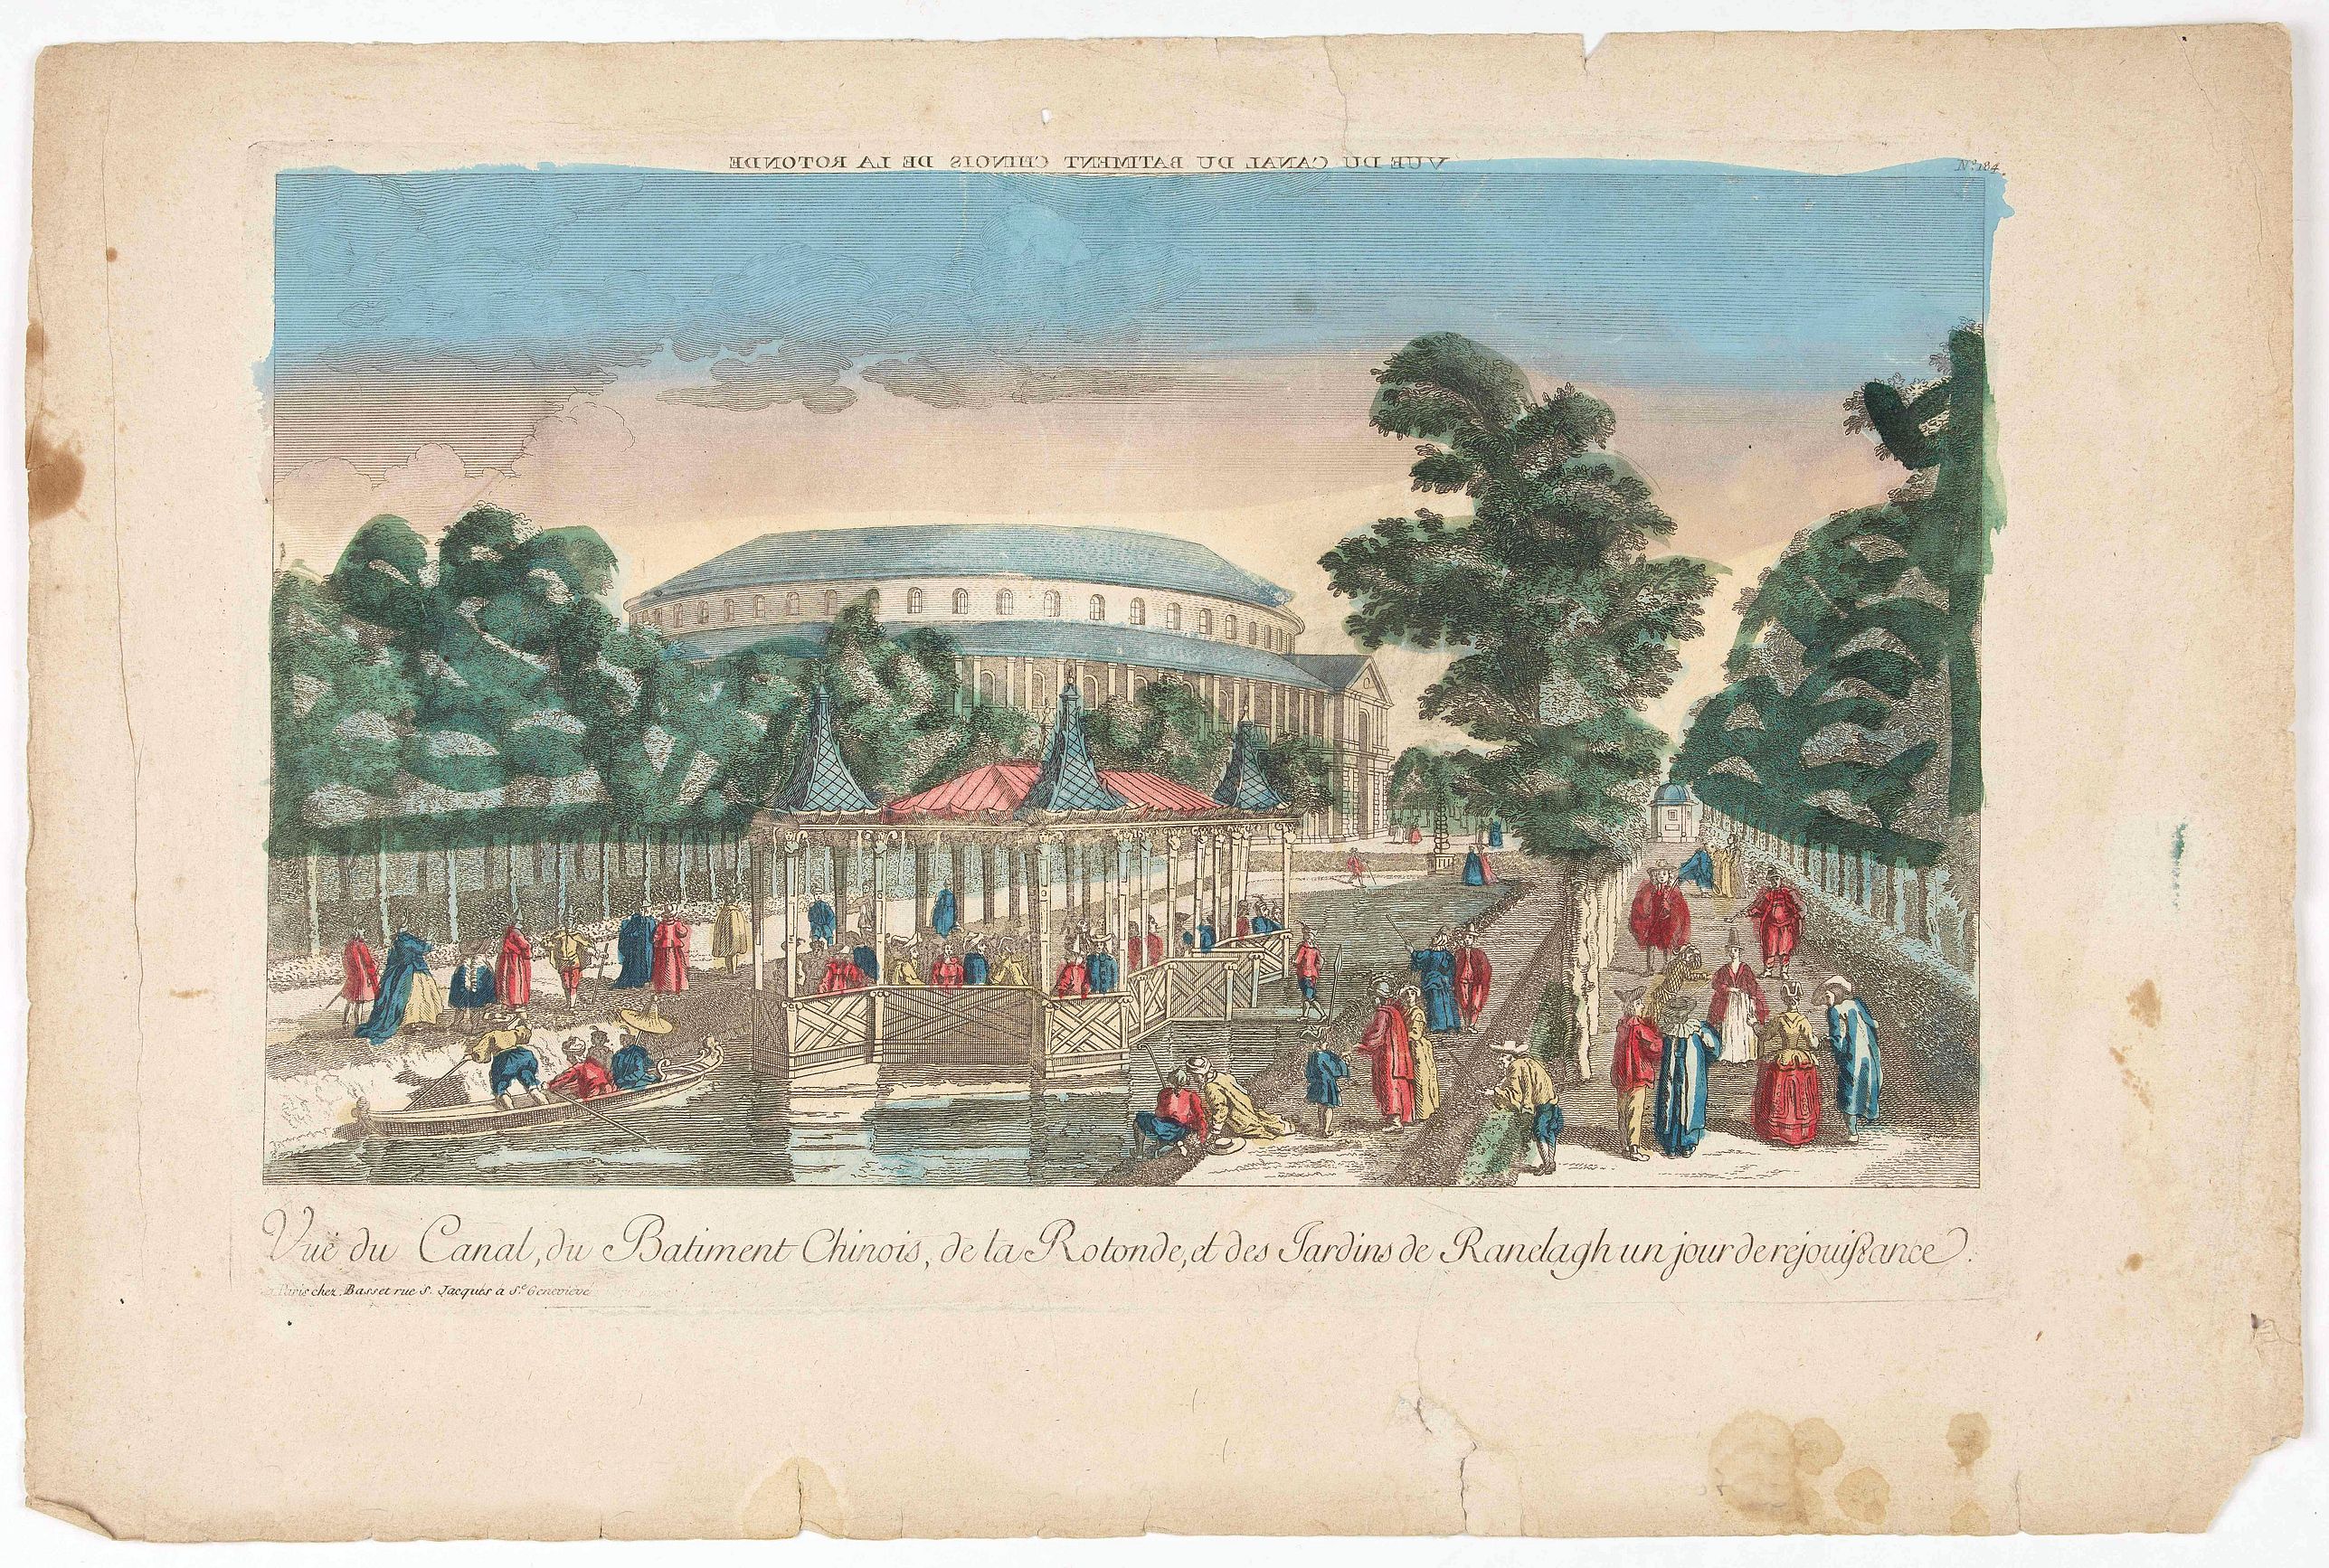 VUE DU CANAL DU BATIMENT CHINOIS DE LA ROTONDE
N.º 184.
Vuë du Canal, du Batiment Chinois, de la Rotonde, et des Jardins de Ranelagh un jour de rejouißance.
a Paris chez Basset rue S. Jacques à S.te Geneviève